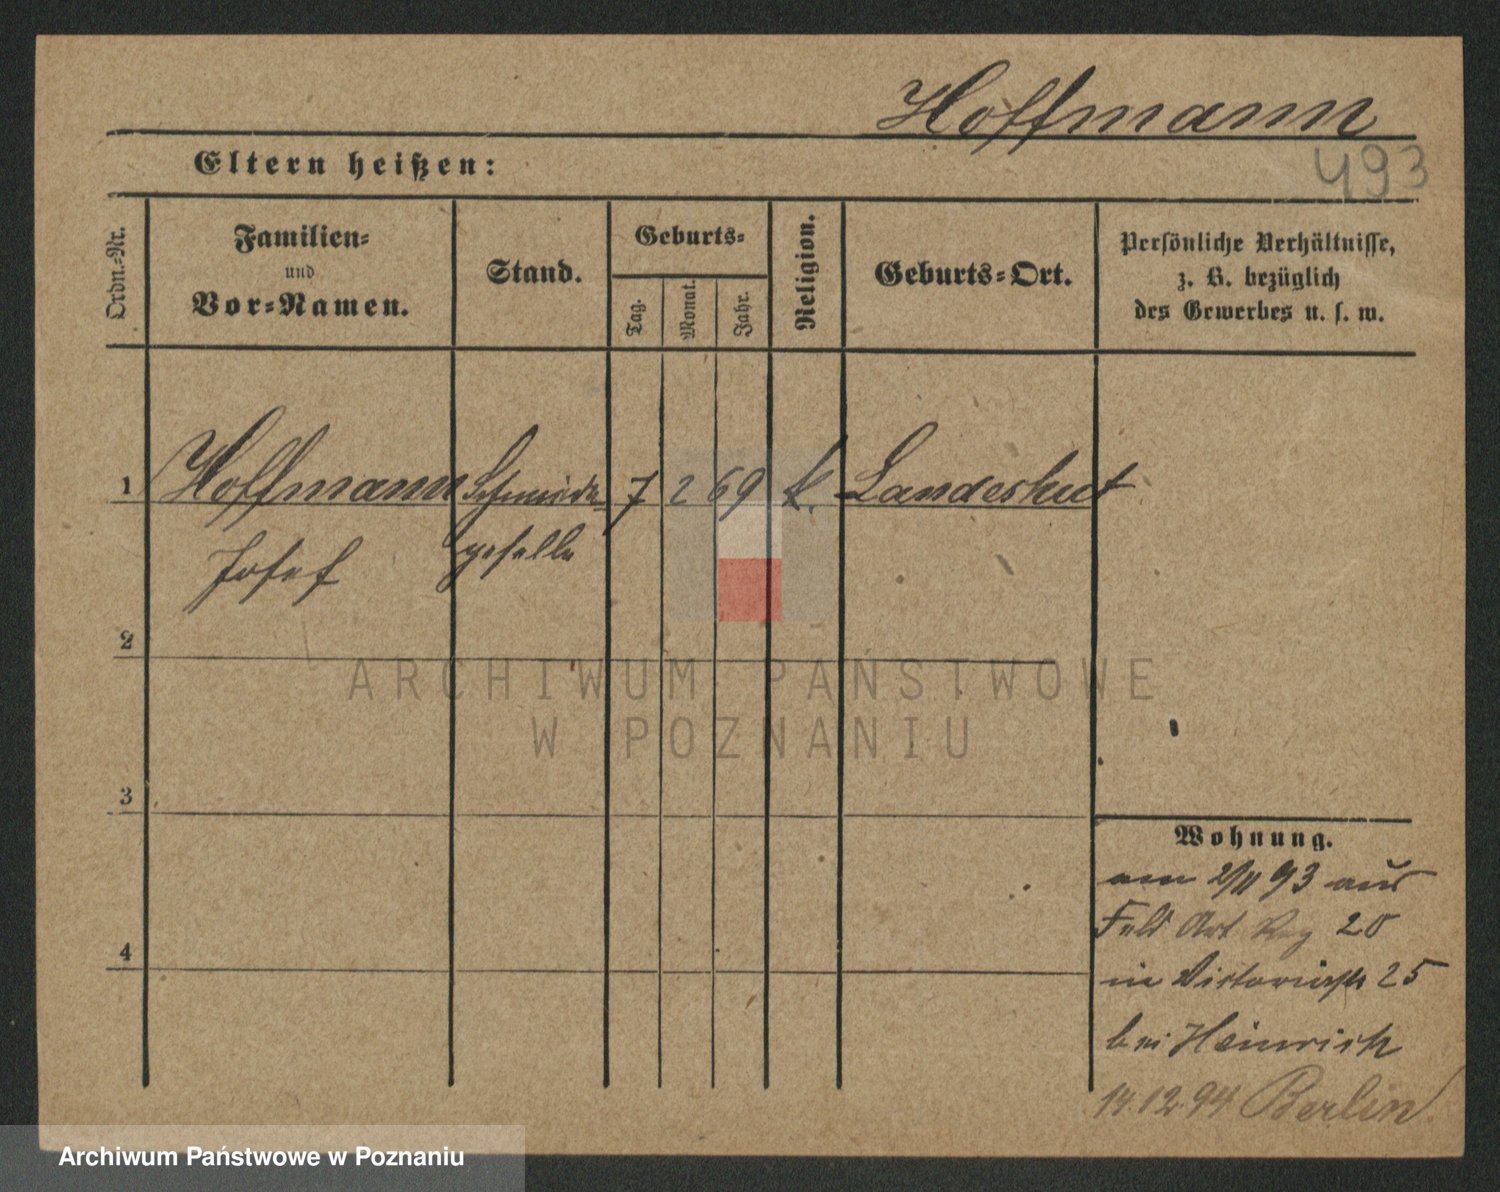 Hoffmann
493
Eltern heißen:
Ordn.-Nr.
Familien-
und
Vor-Namen.
Stand.
Geburts-
Tag.
Monat.
Jahr.
Religion.
Geburts-Ort.
Persönliche Verhältnisse,
z. B. bezüglich
des Gewerbes u. s. w.
1 Hoffmann Schmiede- 7 2 69 k. Landeshut
Josef geselle
2
3
4
Wohnung.
am 2/11 93 aus
Feld Art Reg 20
in Victoriastr 25
bei Heinrich
14.12.94 Berlin.
ARCHIWUM PAŃSTWOWE
W POZNANIU
Archiwum Państwowe w Poznaniu